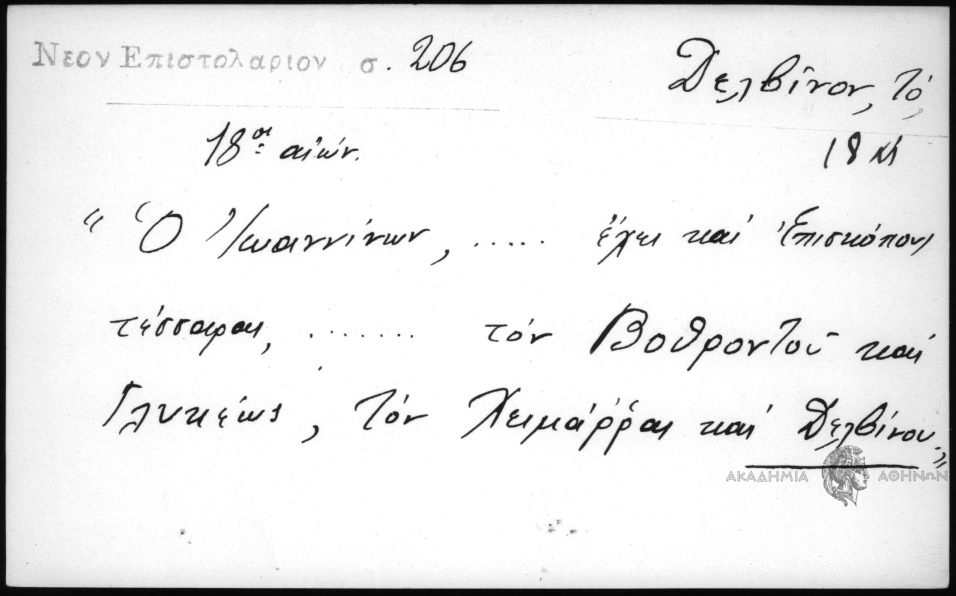 Νεον Επιστολαριον σ. 206
Δελβῖνον, τό
18ος αἰών.
18 αἰ
"Ὁ Ἰωαννίνων, ..... ἔχει καί Ἐπισκόπους
τέσσαρας, ....... τόν Βοθροντοῦ καί
Γλυκέως, τόν Χειμάρρας καί Δελβίνου."
ΑΚΑΔΗΜΙΑ ΑΘΗΝΩΝ